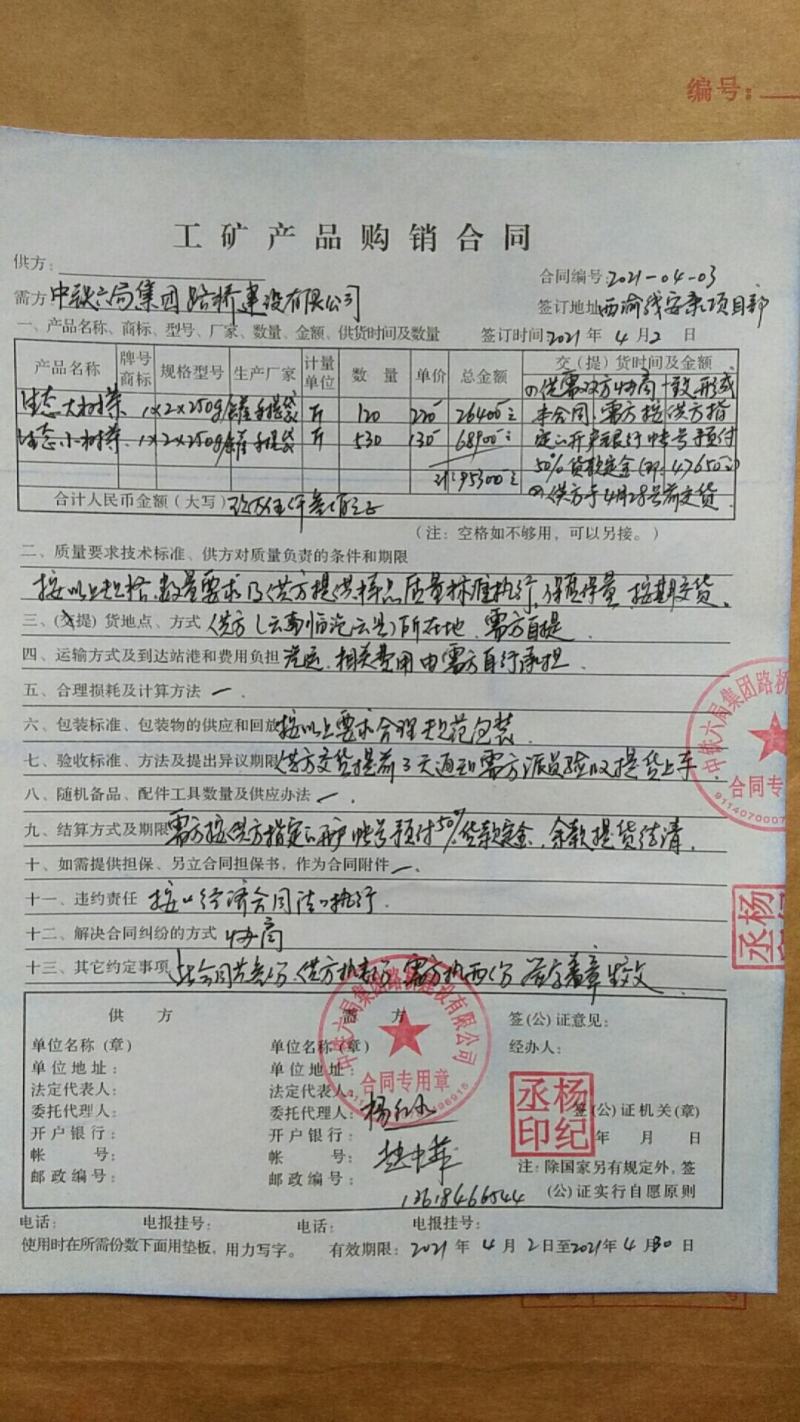 编号：
工矿产品购销合同
供方：
合同编号：2021-04-03
需方 中铁六局集团路桥建设有限公司
签订地址 西渝线安康项目部
一、产品名称、商标、型号、厂家、数量、金额、供货时间及数量 签订时间 2021 年 4 月 2 日
产品名称 牌号商标 规格型号 生产厂家 计量单位 数 量 单价 总金额 交（提）货时间及金额
生态大树茶 1×2×250g 手提袋 斤 120 220 26400
生态小树茶 1×2×250g 手提袋 斤 530 130 68900
95300
①供需双方协商一致形成
本合同，需方按供方指
定的开户银行帐号预付
50%货款定金（即：47650元）
②供方于4月28号前交货
合计人民币金额（大写）玖万伍仟叁佰元正
（注：空格如不够用，可以另接。）
二、质量要求技术标准、供方对质量负责的条件和期限
按以上规格、数量要求及供方提供样品质量标准执行，保质保量 按期交货。
三、（交提）货地点、方式 供方（云南临沧云县）所在地，需方自提
四、运输方式及到达站港和费用负担 汽运，相关费用由需方自行承担
五、合理损耗及计算方法 一
六、包装标准、包装物的供应和回放 按以上要求合理规范包装
七、验收标准、方法及提出异议期限 供方交货提前3天通知需方派员验收提货上车
八、随机备品、配件工具数量及供应办法 一
九、结算方式及期限 需方按供方指定的帐号预付50%货款定金，余款提货结清
十、如需提供担保、另立合同担保书，作为合同附件 一
十一、违约责任 按《经济合同法》执行
十二、解决合同纠纷的方式 协商
十三、其它约定事项 此合同共叁份 供方执壹份 需方执两份 签字盖章生效
供 方 需 方 签（公）证意见：
单位名称（章） 单位名称（章） 经办人：
单位地址： 单位地址：
法定代表人： 法定代表人：
委托代理人： 委托代理人： 签（公）证机关（章）
开户银行： 开户银行： 年 月 日
帐 号： 帐 号： 注：除国家另有规定外，签
邮政编号： 邮政编号： （公）证实行自愿原则
电话： 电报挂号： 电话： 电报挂号：
使用时在所需份数下面用垫板，用力写字。 有效期限：2021 年 4 月 2 日至2021年 4 月30 日
中铁六局集团路桥建设有限公司
合同专用章
杨纪丞印
中铁六局集团路桥
合同专
9114070007
杨
丞